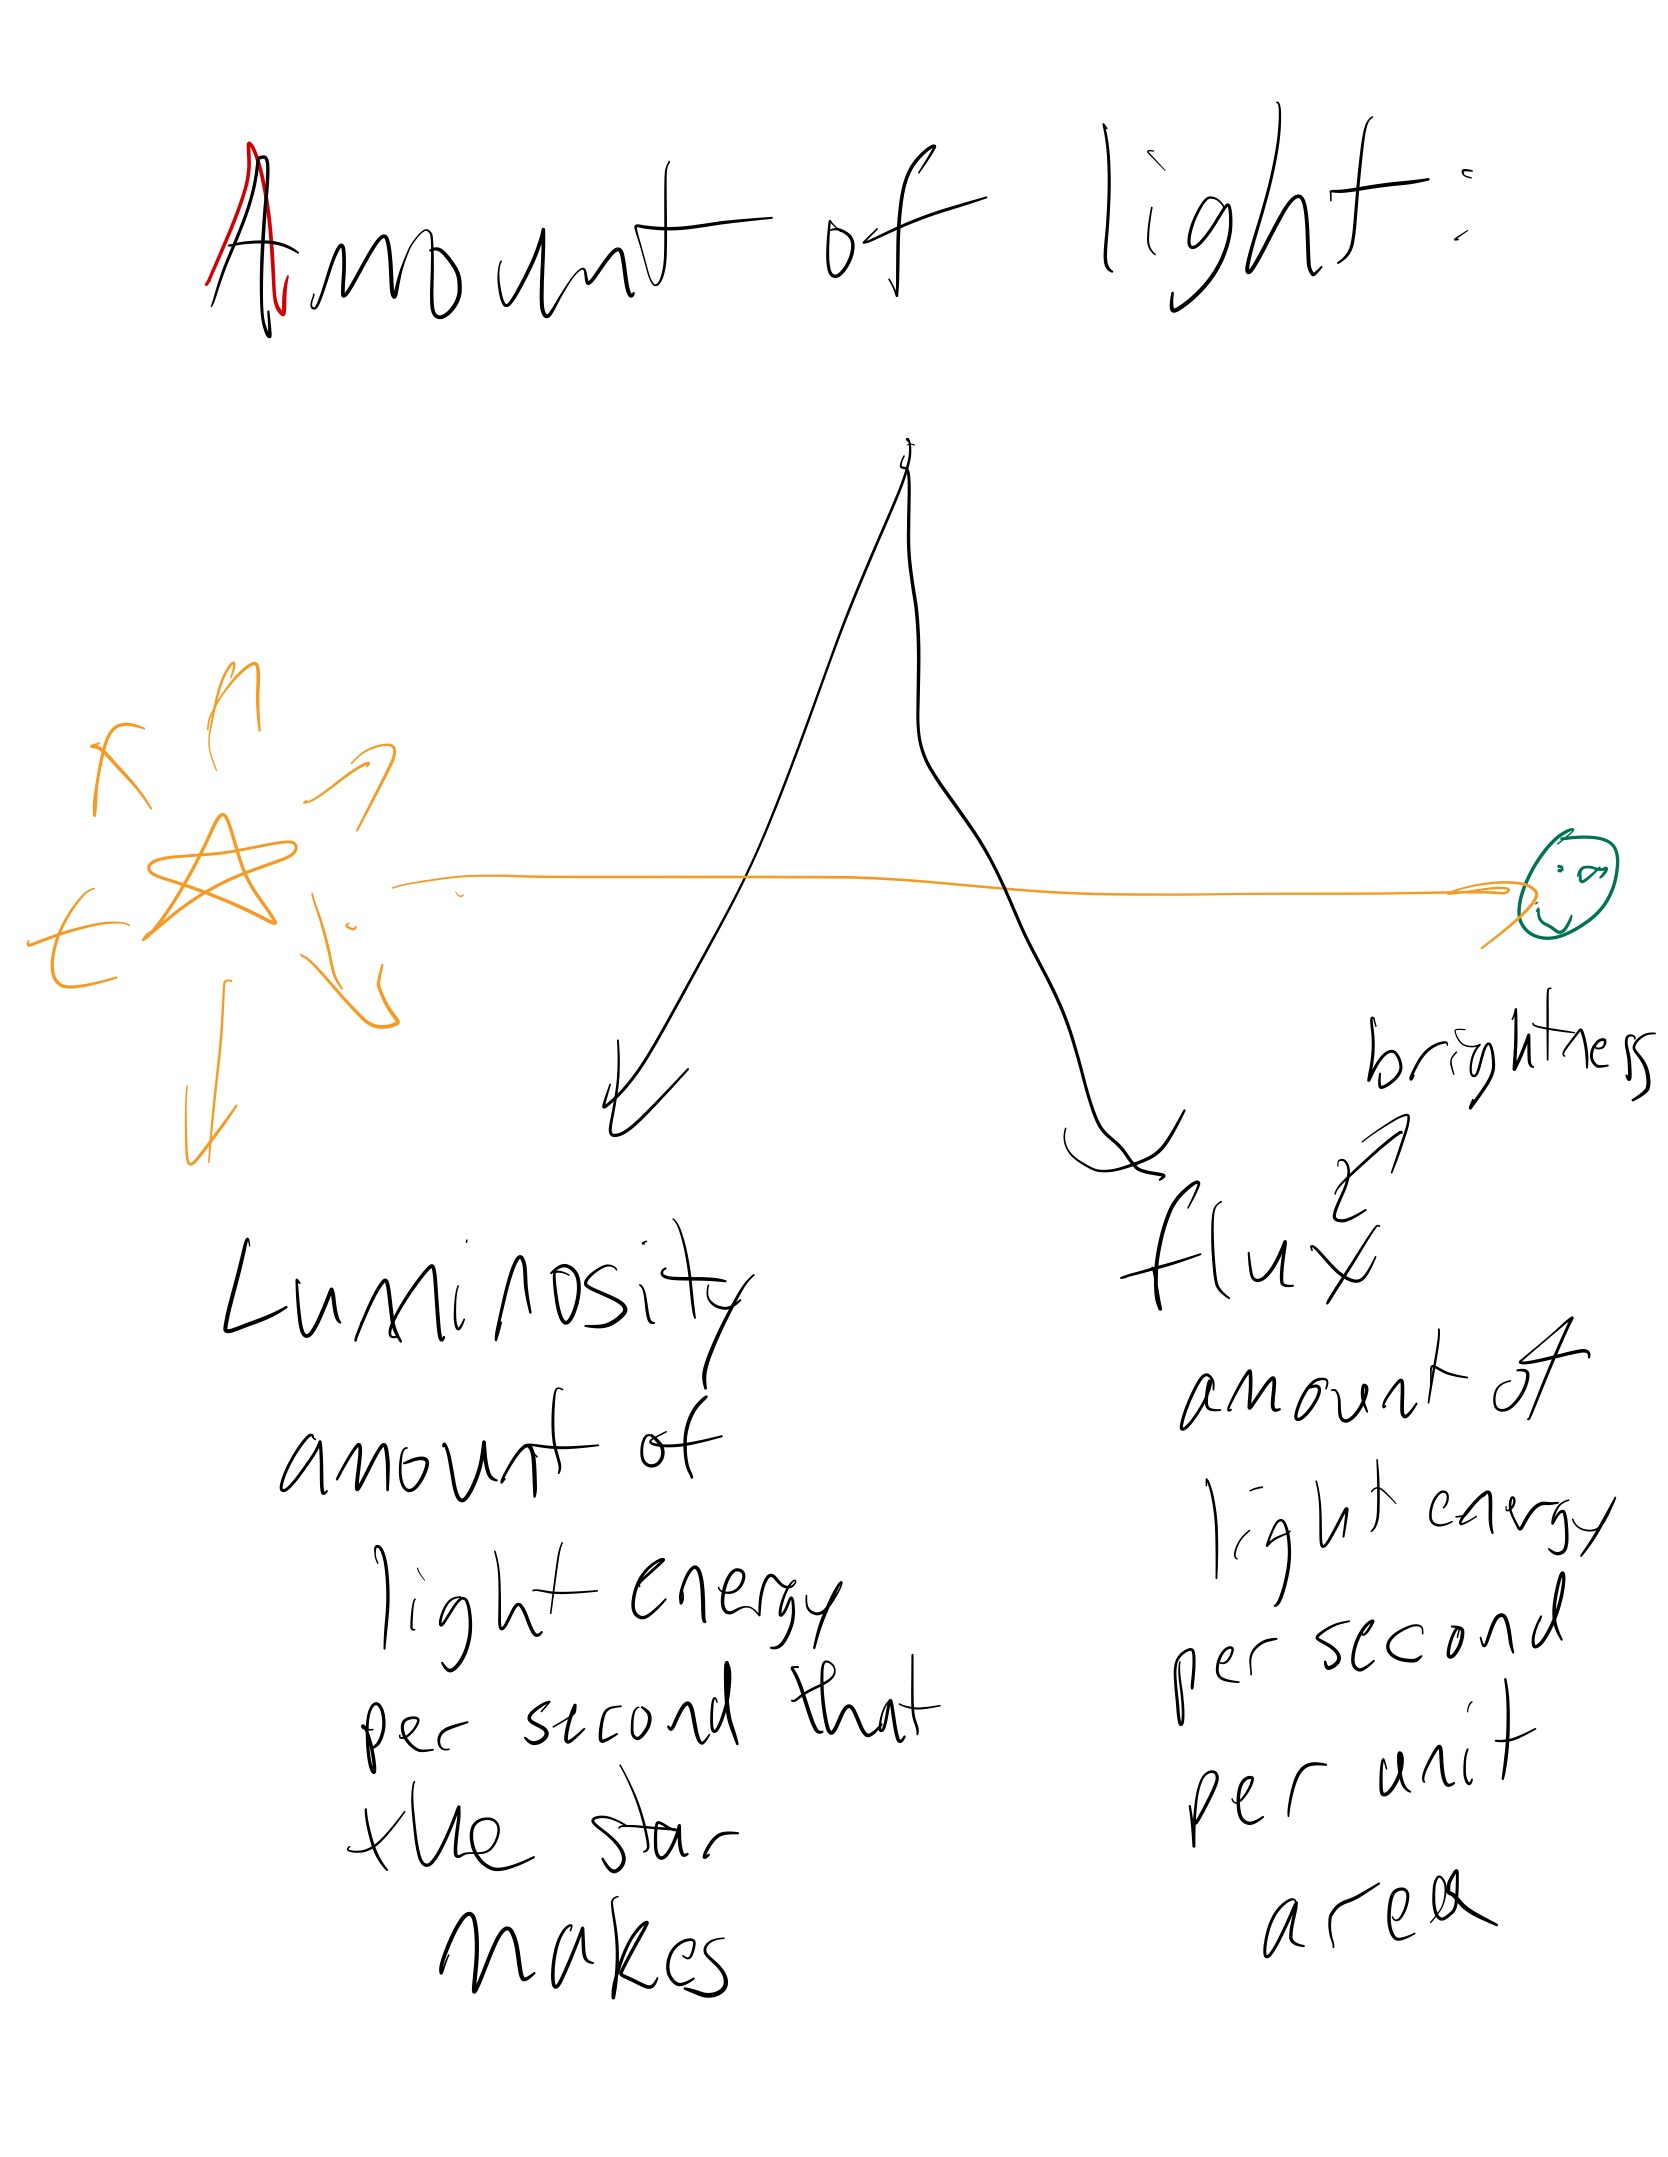 Amount of light:
brightness
Luminosity
amount of
light energy
per second that
the star
makes
flux
amount of
light energy
per second
per unit
area